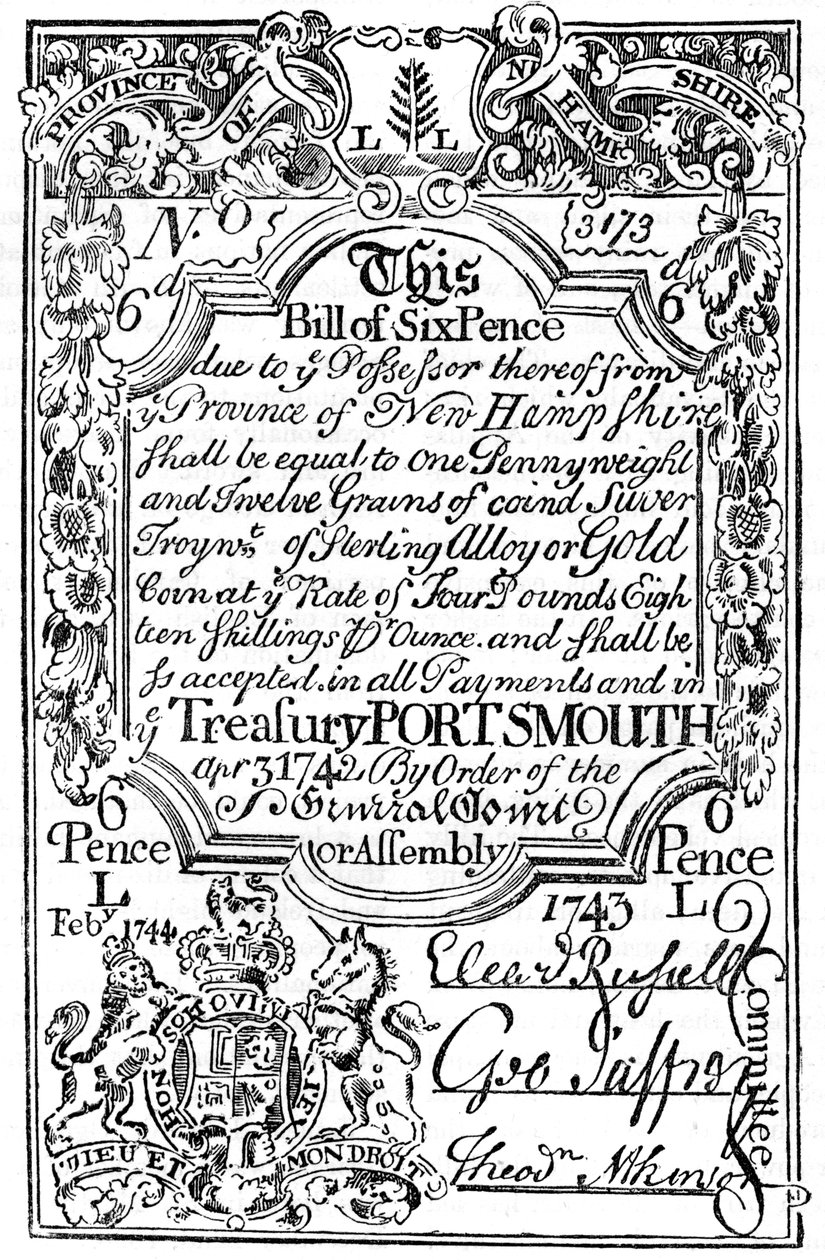 PROVINCE OF NE HAMP SHIRE
L L
No. 3173
6d 6d
This
Bill of SixPence
due to ye Possessor thereof from
ye Province of New Hampshire
shall be equal to One Pennyweight
and Twelve Grains of coind Silver
Troy wt. of Sterling Alloy or Gold
Coin at ye Rate of Four Pounds Eigh
teen Shillings Pr Ounce. and shall be
so accepted. in all Payments and in
ye Treasury PORTSMOUTH
Apr 3 1742 By Order of the
General Court
or Assembly
6 Pence
6 Pence
L
L
Feby 1744
1743
HON SOIT QUI
DIEU ET MON DROIT
Eleazr Russell
Geo Jaffrey
Theodn. Atkinson
Committee